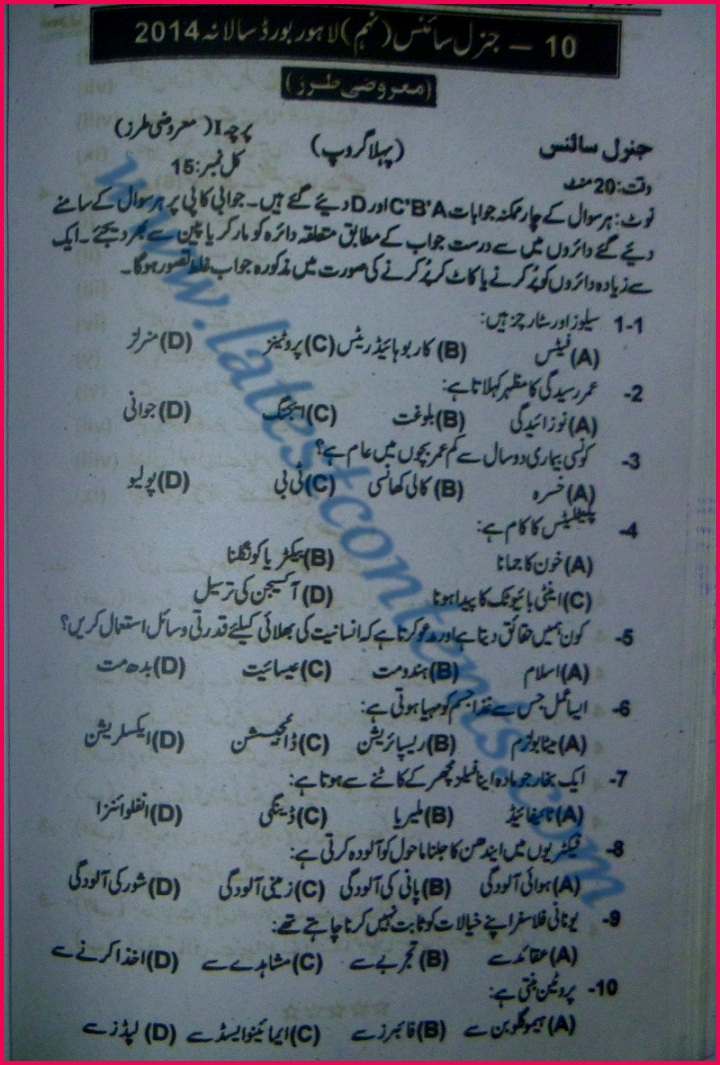 10 - جنرل سائنس (نہم) لاہور بورڈ سالانہ 2014
(معروضی طرز)
جنرل سائنس (پہلا گروپ) پرچہ I (معروضی طرز)
وقت: 20 منٹ کل نمبر: 15
نوٹ: ہر سوال کے چار ممکنہ جوابات C'B'A اور D دیئے گئے ہیں۔ جوابی کاپی پر ہر سوال کے سامنے
دیئے گئے دائروں میں سے درست جواب کے مطابق متعلقہ دائرہ کو مارکر یا پین سے بھر دیجئے۔ ایک
سے زیادہ دائروں کو پُر کرنے یا کاٹ کر پُر کرنے کی صورت میں مذکورہ جواب غلط تصور ہوگا۔
1-1 سیلولوز اور سٹارچز ہیں:
(A) فیٹس (B) کاربوہائیڈریٹس (C) پروٹینز (D) منرلز
2- عمر رسیدگی کا مظہر کہلاتا ہے:
(A) نوزائیدگی (B) بلوغت (C) ایجنگ (D) جوانی
3- کونسی بیماری دو سال سے کم عمر بچوں میں عام ہے؟
(A) خسرہ (B) کالی کھانسی (C) ٹی بی (D) پولیو
4- پلیٹلیٹس کا کام ہے:
(A) خون کا جمانا (B) بیکٹریا کو نگلنا
(C) اینٹی بائیوٹک کا پیدا ہونا (D) آکسیجن کی ترسیل
5- کون ہمیں حقائق دیتا ہے اور مدعو کرتا ہے کہ انسانیت کی بھلائی کیلئے قدرتی وسائل استعمال کریں؟
(A) اسلام (B) ہندومت (C) عیسائیت (D) بدھ مت
6- ایسا عمل جس سے غذا جسم کو مہیا ہوتی ہے:
(A) میٹابولزم (B) ریسپائریشن (C) ڈائجیسشن (D) ایکسکریشن
7- ایک بخار جو مادہ اینافیلیز مچھر کے کاٹنے سے ہوتا ہے:
(A) ٹائیفائیڈ (B) ملیریا (C) ڈینگی (D) انفلوائنزا
8- فیکٹریوں میں ایندھن کا جلنا ماحول کو آلودہ کرتی ہے:
(A) ہوائی آلودگی (B) پانی کی آلودگی (C) زمینی آلودگی (D) شور کی آلودگی
9- یونانی فلاسفر اپنے خیالات کو ثابت نہیں کرنا چاہتے تھے:
(A) عقائد سے (B) تجربے سے (C) مشاہدے سے (D) اخذ کرنے سے
10- پروٹین بنتی ہے:
(A) ہیموگلوبن سے (B) فائبرز سے (C) ایمائینو ایسڈ سے (D) لپڈز سے
www.latestcontents.com